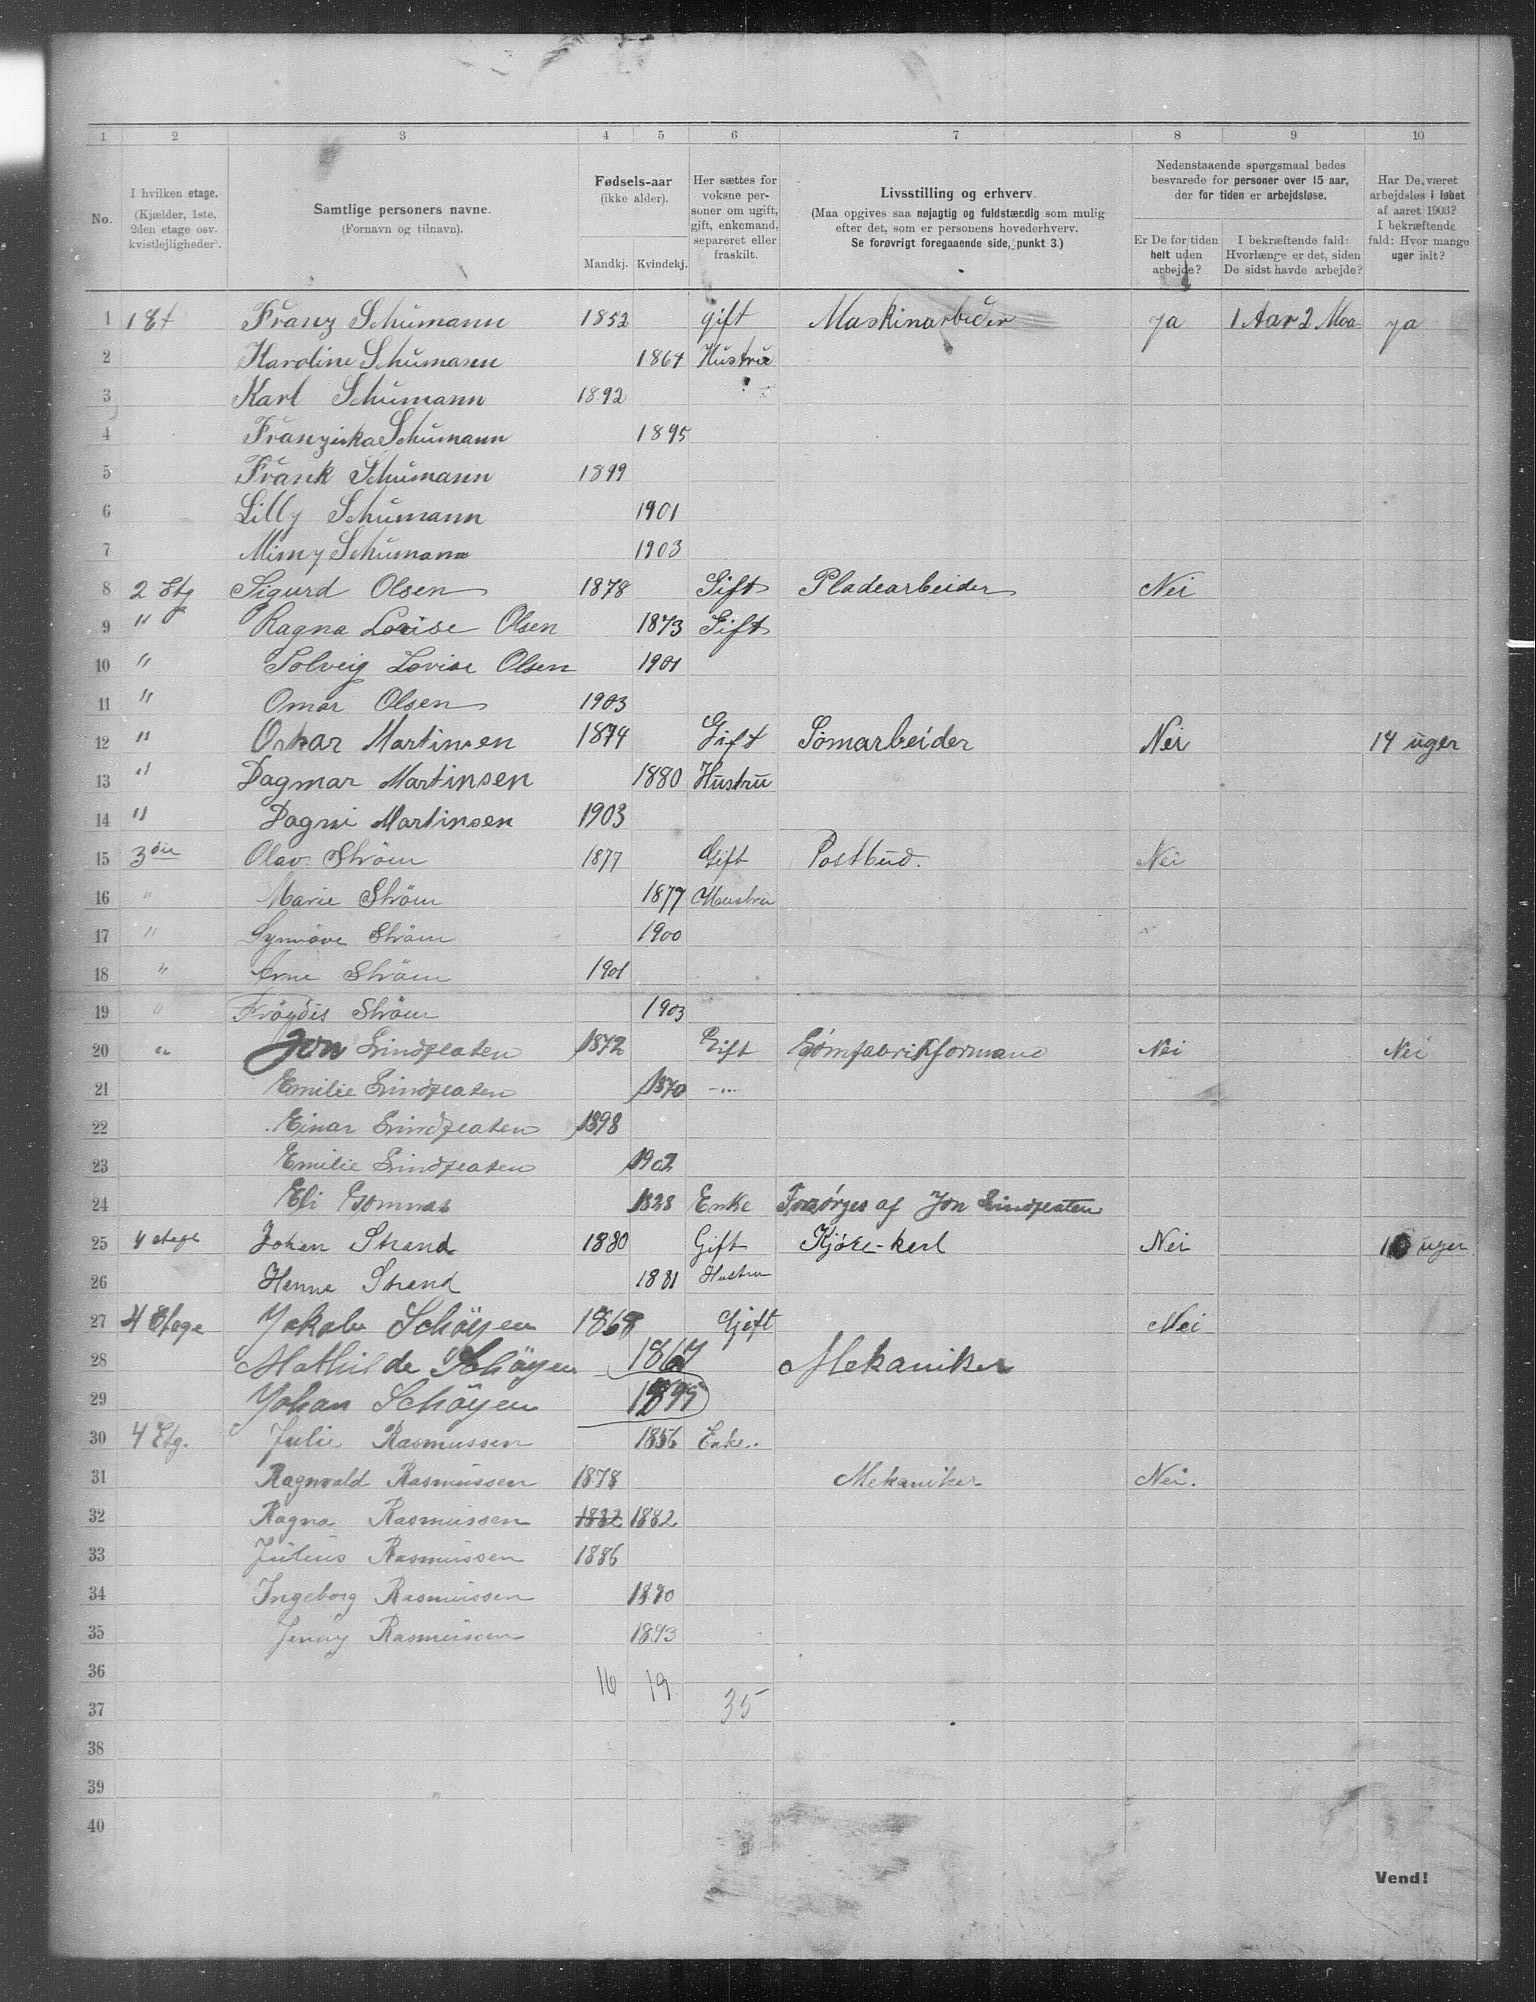 1 2 3 4 5 6 7 8 9 10
No.
I hvilken etage. (Kjælder, 1ste, 2den etage osv. kvistlejligheder).
Samtlige personers navne. (Fornavn og tilnavn).
Fødsels-aar (ikke alder). Mandkj. Kvindekj.
Her sættes for voksne personer om ugift, gift, enkemand, separeret eller fraskilt.
Livsstilling og erhverv. (Maa opgives saa nøjagtig og fuldstændig som mulig efter det, som er personens hovederhverv. Se forøvrigt foregaaende side, punkt 3.)
Nedenstaaende spørgsmaal bedes besvarede for personer over 15 aar, der for tiden er arbejdsløse.
Er De for tiden helt uden arbejde?
I bekræftende fald: Hvorlænge er det, siden De sidst havde arbejde?
Har De været arbejdsløs i løbet af aaret 1903? I bekræftende fald: Hvor mange uger ialt?
1 1 Et Franz Schumann 1852 gift Maskinarbeider ja 1 Aar 2 Moa ja
2 Karoline Schumann 1864 Hustru
3 Karl Schumann 1892
4 Franziska Schumann 1895
5 Frank Schumann 1899
6 Lilly Schumann 1901
7 Mimy Schumann 1903
8 2 Etg Sigurd Olsen 1878 Gift Pladearbeider Nei
9 " Ragna Lovise Olsen 1873 Gift
10 " Solveig Lovise Olsen 1901
11 " Omar Olsen 1903
12 " Oskar Martinsen 1874 Gift Sömarbeider Nei 14 uger
13 " Dagmar Martinsen 1880 Hustru
14 " Dagni Martinsen 1903
15 3die Olav Ström 1877 Gift Postbud. Nei
16 " Marie Ström 1877 Hustru
17 " Synnöve Ström 1900
18 " Arne Ström 1901
19 " Fröydis Ström 1903
20 " Jon Lindflaten 1872 Gift Sömfabrikformand Nei Nei
21 Emilie Lindflaten 1870 -"-
22 Einar Lindflaten 1898
23 Emilie Lindflaten 1902
24 Eli 1828 Enke Forsörges af Jon Lindflaten
25 4 etage Johan Strand 1880 Gift Kjöre-karl Nei uger
26 Hanna Strand 1881 Hustru
27 4 Etage Jakob Schöyen 1868 Gift Nei
28 Mathilde Schöyen 1867 Mekaniker
29 Johan Schöyen 1895
30 4 Etg. Julie Rasmussen 1856 Enke.
31 Ragnvald Rasmussen 1878 Mekaniker Nei.
32 Ragna Rasmussen 1882 1882
33 Julius Rasmussen 1886
34 Ingeborg Rasmussen 1890
35 Jenny Rasmussen 1893
36 16 19
37 35
38
39
40
Vend!